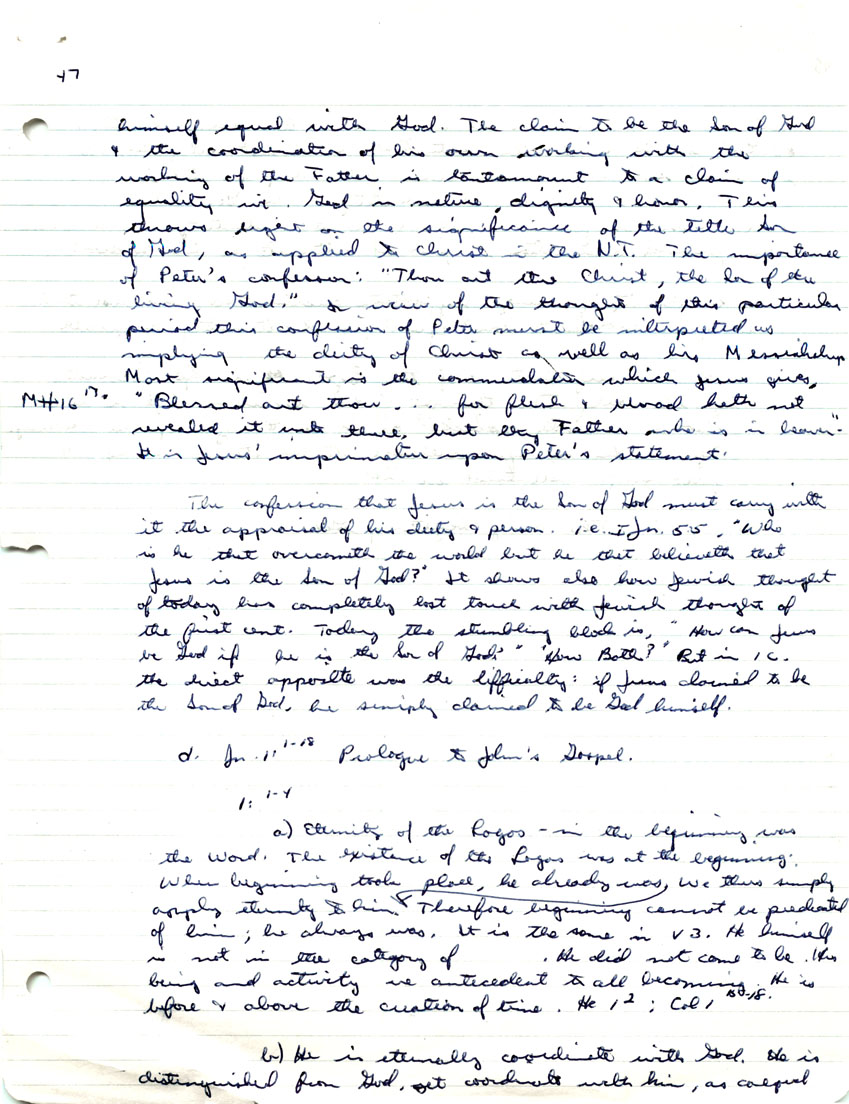 47
himself equal with God. The claim to be the Son of God
& the coordination of his own working with the
working of the Father is tantamount to a claim of
equality w. God in nature, dignity & honor. This
throws light on the significance of the title Son
of God, as applied to Christ in the N.T. The importance
of Peter's confession: "Thou art the Christ, the Son of the
living God." In view of the thought of this particular
period this confession of Peter must be interpreted as
implying the deity of Christ as well as his Messiahship
Most significant is the commendation which Jesus gives,
Mt 16 17. "Blessed art thou... for flesh & blood hath not
revealed it unto thee, but my Father who is in heaven".
It is Jesus' imprimatur upon Peter's statement.
The confession that Jesus is the Son of God must carry with
it the appraisal of his deity & person. i.e. I Jn. 5:5, "Who
is he that overcometh the world but he that believeth that
Jesus is the Son of God?" It shows also how Jewish thought
of today has completely lost touch with Jewish thought of
the first cent. Today the stumbling block is, "How can Jesus
be God if he is the Son of God?" "How Both?" But in 1 c.
the direct opposite was the difficulty: if Jesus claimed to be
the Son of God, he simply claimed to be God himself.
d. Jn. 1:1-18 Prologue to John's Gospel.
1:1-4
a) Eternity of the Logos - in the beginning was
the Word. The existence of the Logos was at the beginning.
When beginning took place, he already was, We thus simply
apply eternity to him. Therefore beginning cannot be predicated
of him; he always was. It is the same in v 3. He himself
is not in the category of . He did not come to be. His
being and activity are antecedent to all becoming. He is
before & above the creation of time. He 1 2; Col 1
b) He is eternally coordinate with God. He is
distinguished from God, yet coordinate with him, as coequal